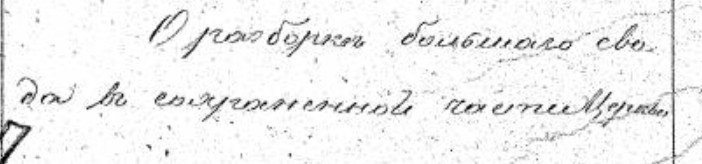 О разборкѣ большаго сво-
да въ сохраненной части Церкви